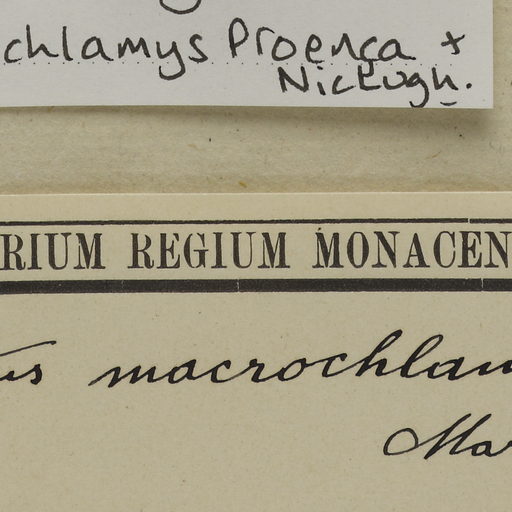 chlamys Proença +
NicLugh.
RIUM REGIUM MONACEN
us macrochlam
Mar